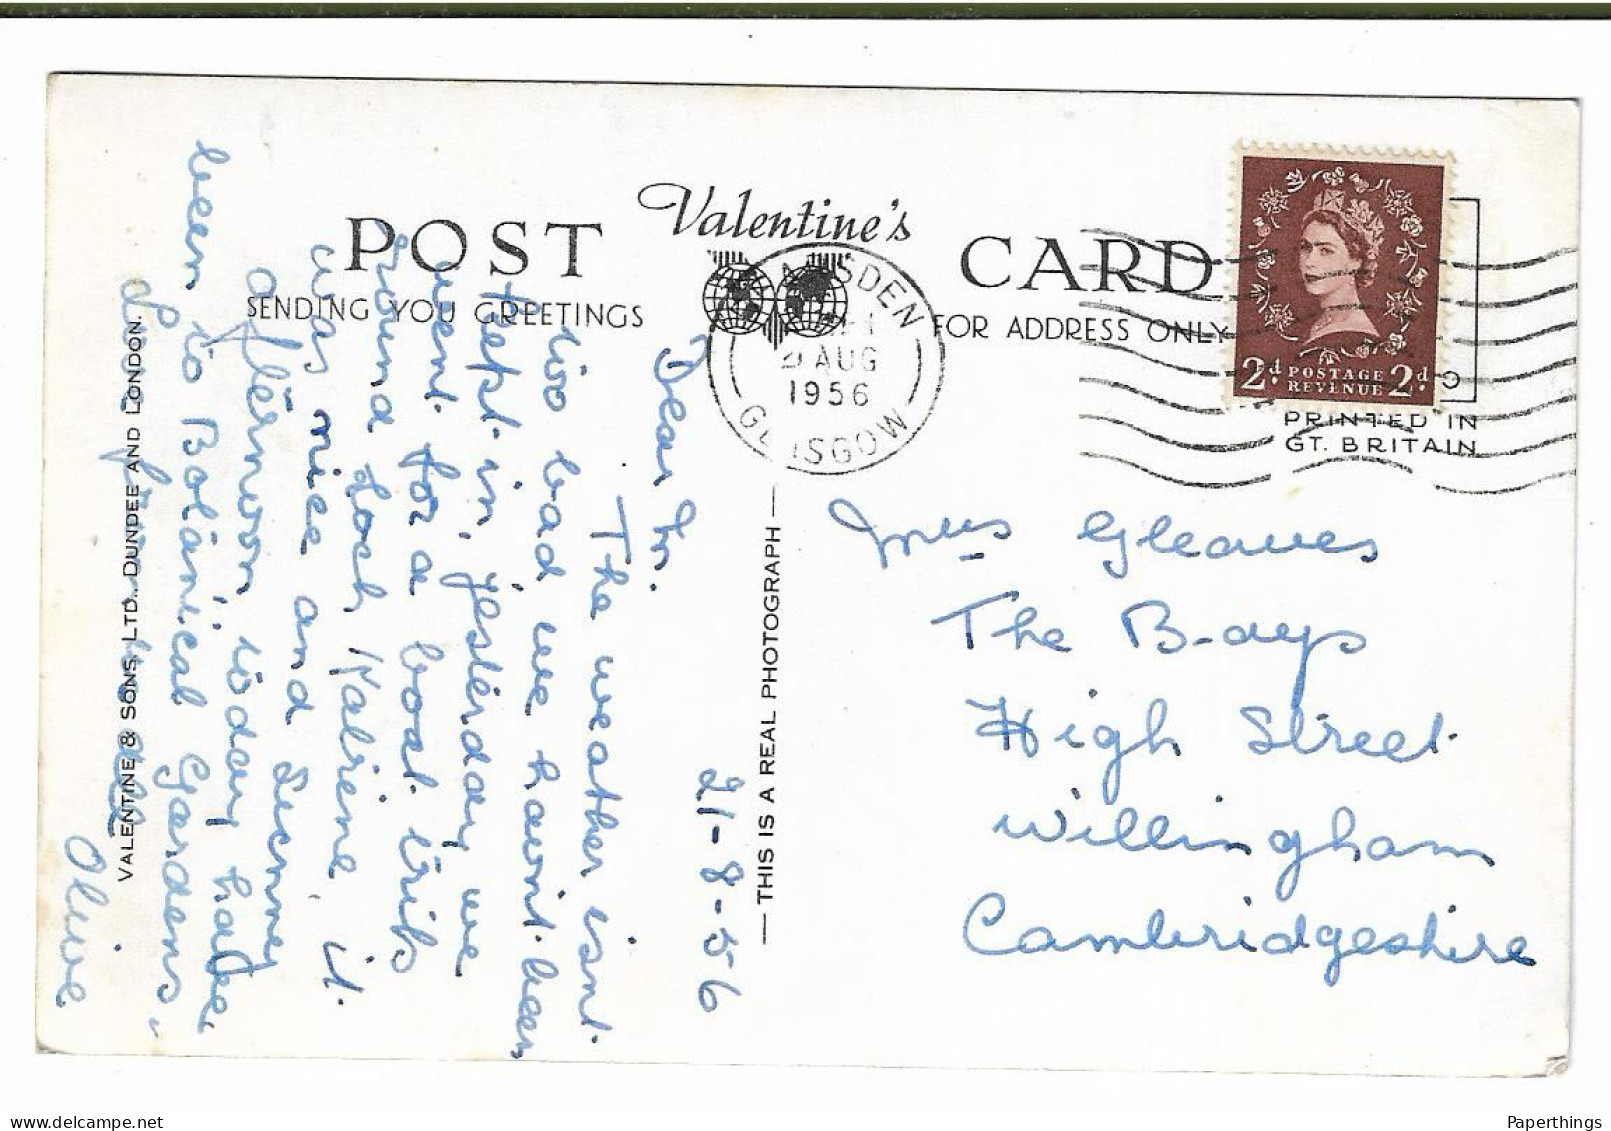 POST
Valentine's
CARD
SENDING YOU GREETINGS
FOR ADDRESS ONLY
AUG
1956
2d POSTAGE REVENUE 2d
PRINTED IN
GT. BRITAIN
THIS IS A REAL PHOTOGRAPH
VALENTINE & SONS, LTD., DUNDEE AND LONDON.
21-8-56
Dear
The weather isnt
too bad we havnt been
kept in, yesterday we
went for a boat trip
round Loch Katrine, it
was nice and Sunny
afternoon, today have
been to Botanical Gardens,
Love from all
Olive
Mrs Gleaves
The B-ays
High Street
Willingham
Cambridgeshire
Paperthings